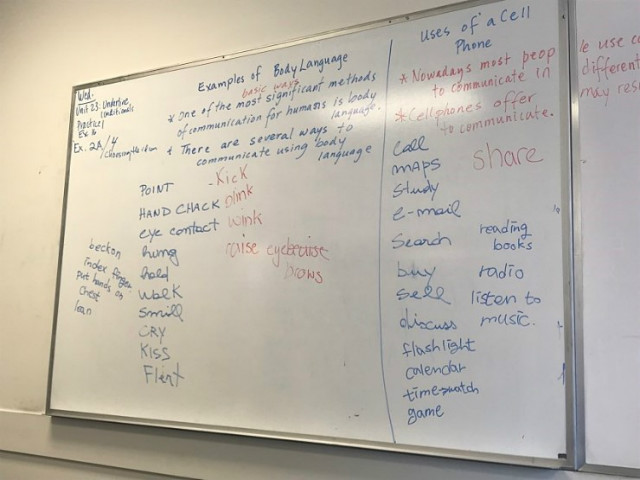 Wed.
Unit 23: Underline,
Conditionals
Practice 1
Ex. 1b
Ex. 2A/4
Examples of Body Language
basic ways
* One of the most significant methods
of communication for humans is body
language.
* There are several ways to
communicate using body
language
POINT
HAND CHACK
eye contact
hung
hold
Walk
Smill
CRY
KISS
Flirt
- Kick
wink
raise eyebraise
brows
beckon
index finger
put hands on
chest
lean
Uses of a Cell
Phone
* Nowadays most peop
to communicate in
* Cellphones offer
to communicate.
Call
maps
Study
e-mail
Search
buy
Sell
discuss
flashlight
calendar
time-watch
game
share
reading
books
radio
listen to
music.
e use ce
different
may resu